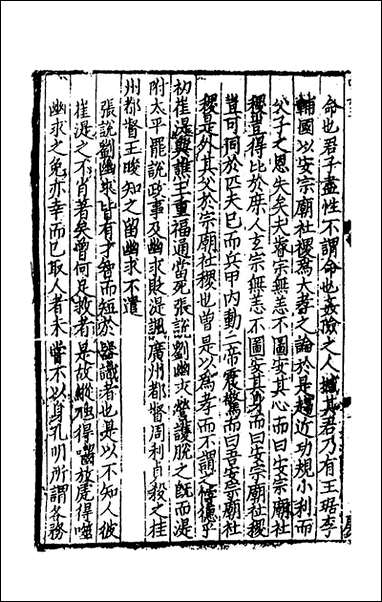 命也君子盡性不謂命也姦險之人撼其君乃有王琚李
輔國以安宗廟社稷為大孝之論於是趨近功規小利而
父子之恩失矣夫睿宗無恙不圖安其心而曰安宗廟社
稷豈得比於庶人玄宗無恙不圖安其身而曰安宗廟社稷
豈可同於匹夫已而兵甲内動二帝震驚而曰吾安宗廟社
稷是外其父於宗廟社稷也曾是以為孝而不謂之悖德乎
初崔湜與譙王重福通當死張說劉幽求營護脫之既而湜
附太平罷說政事及幽求敗湜諷廣州都督周利貞殺之桂
州都督王晙知之留幽求不遣
張說劉幽求皆有才智而短於器識者也是以不知人彼
崔湜之不貞者矣曾何足救者是故縱得放虎得噬
幽求之免亦幸而已取人者未嘗不以身孔明所謂各務